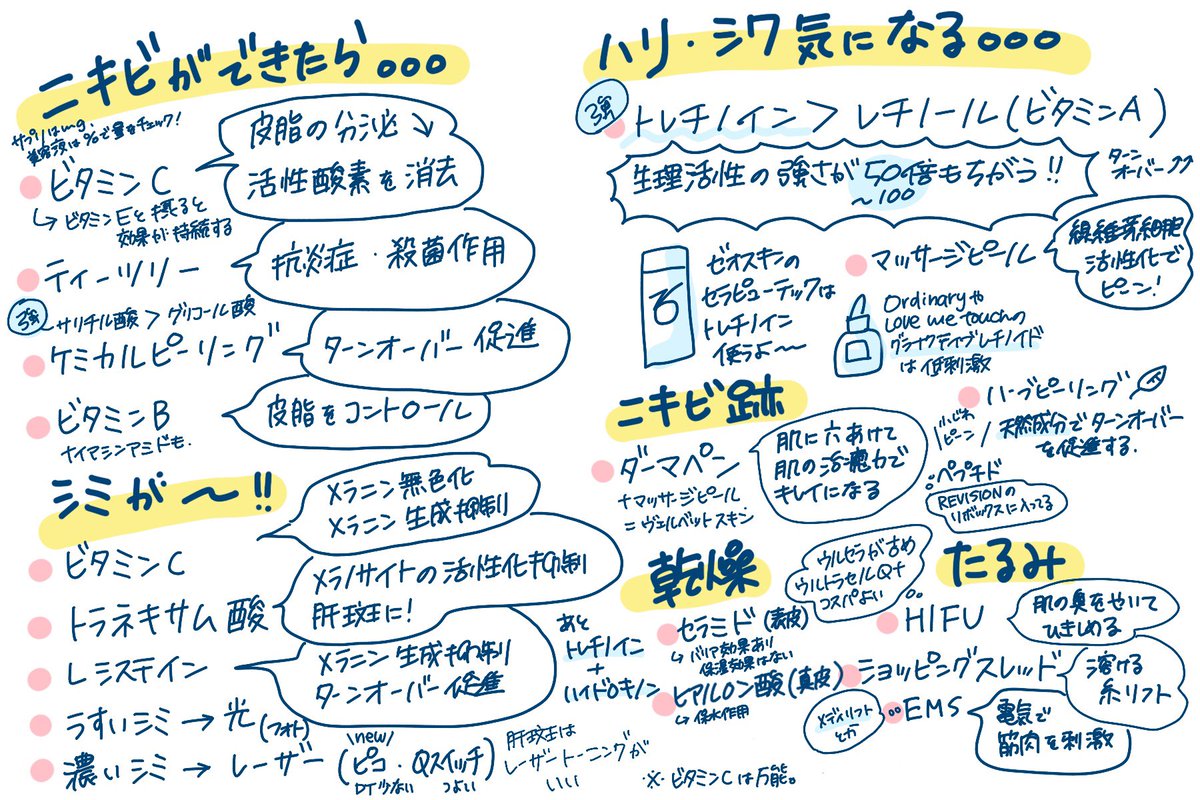 ニキビができたら。。。
サプリはmg、
美容液は%で量をチェック!
ビタミンC
皮脂の分泌↘
活性酸素を消去
↳ビタミンEと摂ると
効果が持続する
ティーツリー
抗炎症・殺菌作用
強
サリチル酸>グリコール酸
ケミカルピーリング
ターンオーバー促進
ビタミンB
ナイアシンアミドも.
皮脂をコントロール
シミが〜!!
ビタミンC
メラニン無色化
メラニン生成抑制
トラネキサム酸
メラノサイトの活性化抑制
肝斑に!
Lシステイン
メラニン生成抑制
ターンオーバー促進
あと
トレチノイン
+
ハイドロキノン
うすいシミ→光(フォト)
濃いシミ→レーザー(ピコ・Qスイッチ)
\new/
DT少ない
つよい
肝斑は
レーザートーニングが
いい
ハリ・シワ気になる。。。
強
トレチノイン>レチノール(ビタミンA)
生理活性の強さが50倍もちがう!!
〜100
ターン
オーバー↗↗
ゼオスキンの
セラピューテックは
トレチノイン
使うよ〜
マッサージピール
線維芽細胞
活性化で
ピーン!
Ordinaryや
Love me touchの
グラナクティブレチノイド
は低刺激
ハーブピーリング
天然成分でターンオーバー
を促進する.
\小じわ
ピーン/
ペプチド
REVISIONの
リボックスに入ってる
ニキビ跡
ダーマペン
+マッサージピール
=ヴェルベットスキン
肌に穴あけて
肌の治癒力で
キレイになる
乾燥
セラミド(表皮)
↳バリア効果あり
保湿効果はない
ヒアルロン酸(真皮)
↳保水作用
※ビタミンCは万能。
たるみ
ウルセラが古め
ウルトラセルQ+
コスパよい
HIFU
肌の奥をやいて
ひきしめる
ショッピングスレッド
溶ける
糸リフト
メディリフト
とか
EMS
電気で
筋肉を刺激